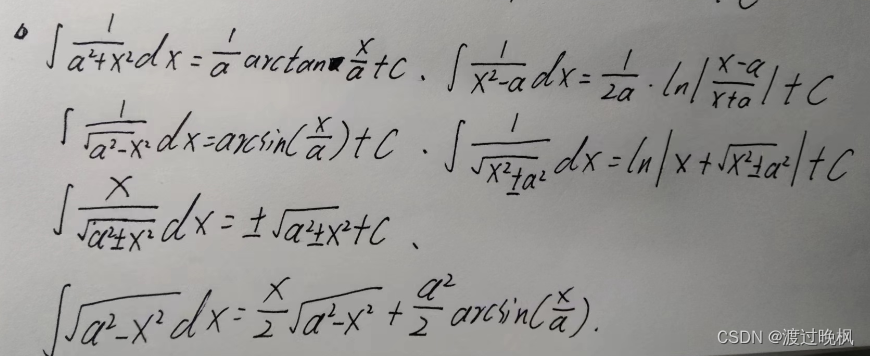 ∫ 1/(a²+x²) dx = 1/a arctan x/a + C . ∫ 1/(x²-a) dx = 1/2a · ln|(x-a)/(x+a)| + C
∫ 1/√(a²-x²) dx = arcsin(x/a) + C . ∫ 1/√(x²±a²) dx = ln|x+√(x²±a²)| + C
∫ x/√(a²±x²) dx = ±√(a²±x²) + C 、
∫ √(a²-x²) dx = x/2 √(a²-x²) + a²/2 arcsin(x/a).
CSDN @渡过晚枫